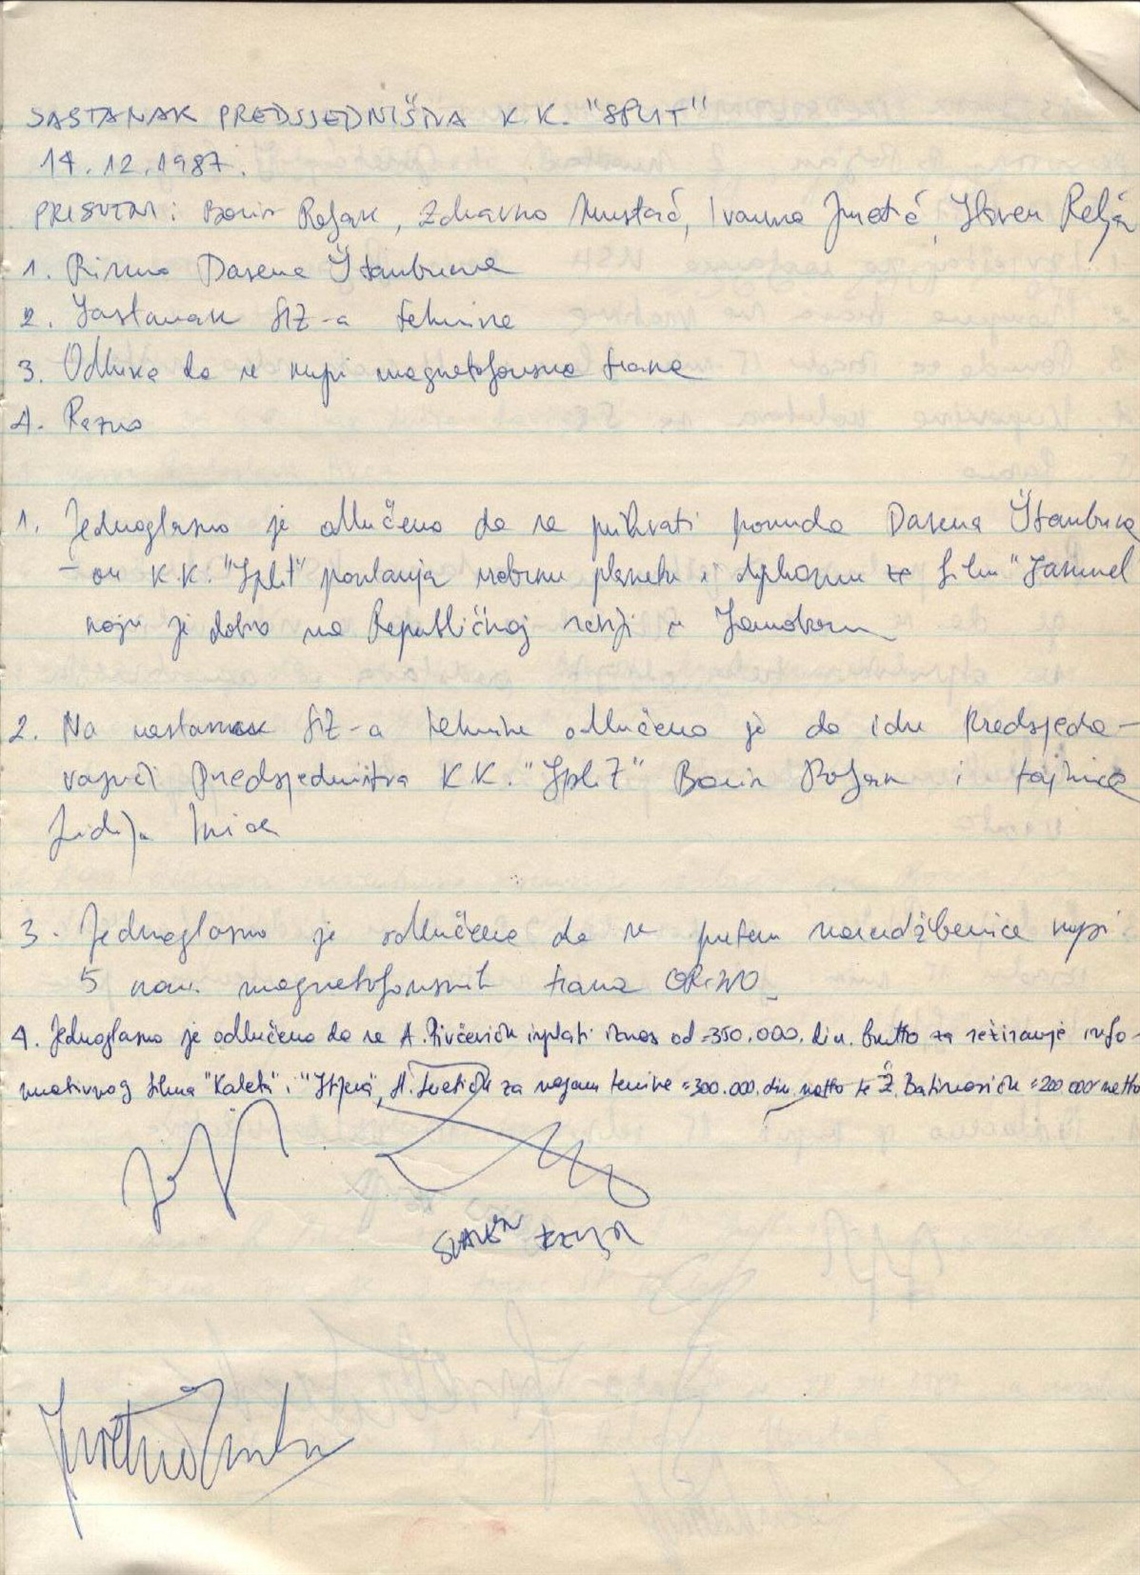 SASTANAK PREDSJEDNIŠTVA K.K. "SPLIT"
14.12.1987.
PRISUTNI: Boris Poljak, Zdravko Mustać, Ivanka Juretić, Slaven Relja
1. Pismo Darena Štambuka
2. Sastanak SIZ-a tehnike
3. Odluka da se kupi magnetofonska traka
4. Razno
1. Jednoglasno je odlučeno da se prihvati ponuda Štambuka
– K.K. "Split" poklanja srebrnu plaketu i diplomu za film
koju je dobio na Republičkoj reviji u Samoboru
2. Na sastanak SIZ-a tehnike odlučeno je da idu Predsjeda–
vajući Predsjedništva K.K. "Split" Boris Poljak i tajnica
Lidija
3. Jednoglasno je odlučeno da se putem narudžbenice kupi
5 kom. magnetofonskih traka ORWO
4. Jednoglasno je odlučeno da se A. Pivčeviću isplati iznos od =350.000. din. brutto za režiranje info–
mativnog filma "Kaleta" i "Stijena", A. Svetiću za najam tehnike =300.000. din netto te Ž. Batinoviću =200 000 netto
SLAVEN RELJA